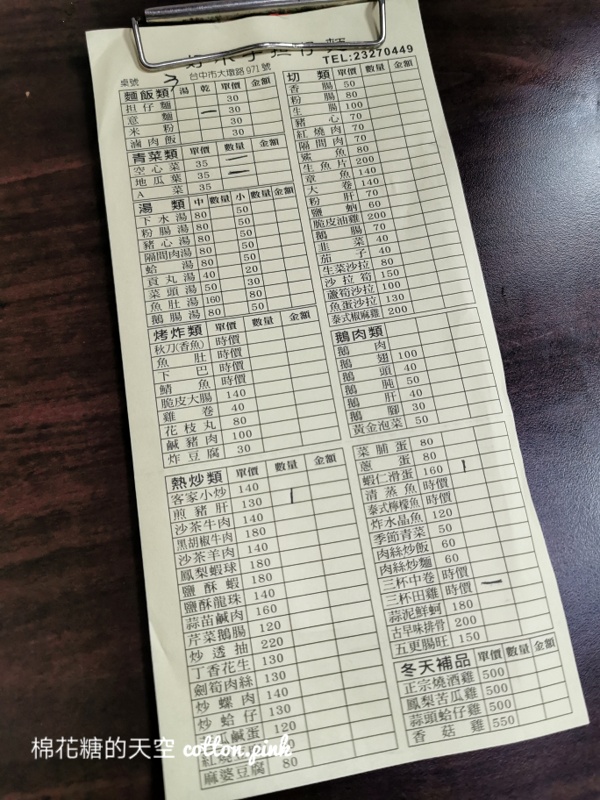 TEL:23270449
桌號
台中市大墩路971號
麵飯類 湯 乾 單價 金額
担仔麵 30
意麵 30
米粉 30
滷肉飯
青菜類 單價 數量 金額
空心菜 35
地瓜葉 35
A菜 35
湯類 中 數量 小 數量 金額
下水湯 80 50
粉腸湯 80 50
豬心湯 80 50
隔間肉湯 80 50
蛤湯 80 50
貢丸湯 40 20
菜頭湯 50 30
魚肚湯 160 80
鵝腸湯 80 50
烤炸類 單價 數量 金額
秋刀(香魚) 時價
魚肚 時價
下巴 時價
鯖魚 時價
脆皮大腸 140
雞卷 40
花枝丸 80
鹹豬肉 100
炸豆腐 30
熱炒類 單價 數量 金額
客家小炒 140
煎豬肝 130
沙茶牛肉 140
黑胡椒牛肉 180
沙茶羊肉 140
鳳梨蝦球 180
鹽酥蝦 180
鹽酥龍珠 140
蒜苗鹹肉 160
芹菜鵝腸 120
炒透抽 220
丁香花生 130
劍筍肉絲 130
炒螺肉 140
炒蛤仔 130
瓜鹹蛋 120
紅燒
麻婆豆腐 80
切類 單價 數量 金額
香腸 50
粉腸 80
生腸 100
豬心 70
紅燒肉 70
隔間肉 70
鯊魚 80
生魚片 200
章魚 140
大卷 140
粉肝 70
鹽蚵 60
脆皮油雞 200
鵝腸 70
韭菜 40
茄子 40
生菜沙拉 80
沙拉筍 150
蘆筍沙拉 100
魚蛋沙拉 130
泰式椒麻雞 200
鵝肉類 單價 數量 金額
鵝肉
鵝翅 100
鵝頭 40
鵝肫 50
鵝肝 40
鵝腳 30
黃金泡菜 50
菜脯蛋 80
蔥蛋 80
蝦仁滑蛋 160
清蒸魚 時價
泰式檸檬魚 時價
炸水晶魚 120
季節青菜 50
肉絲炒飯 60
肉絲炒麵 60
三杯中卷 時價
三杯田雞 時價
蒜泥鮮蚵 180
古早味排骨 200
五更腸旺 150
冬天補品 單價 數量 金額
正宗燒酒雞 500
鳳梨苦瓜雞 500
蒜頭蛤仔雞 500
香菇雞 550
棉花糖的天空 cotton.pink